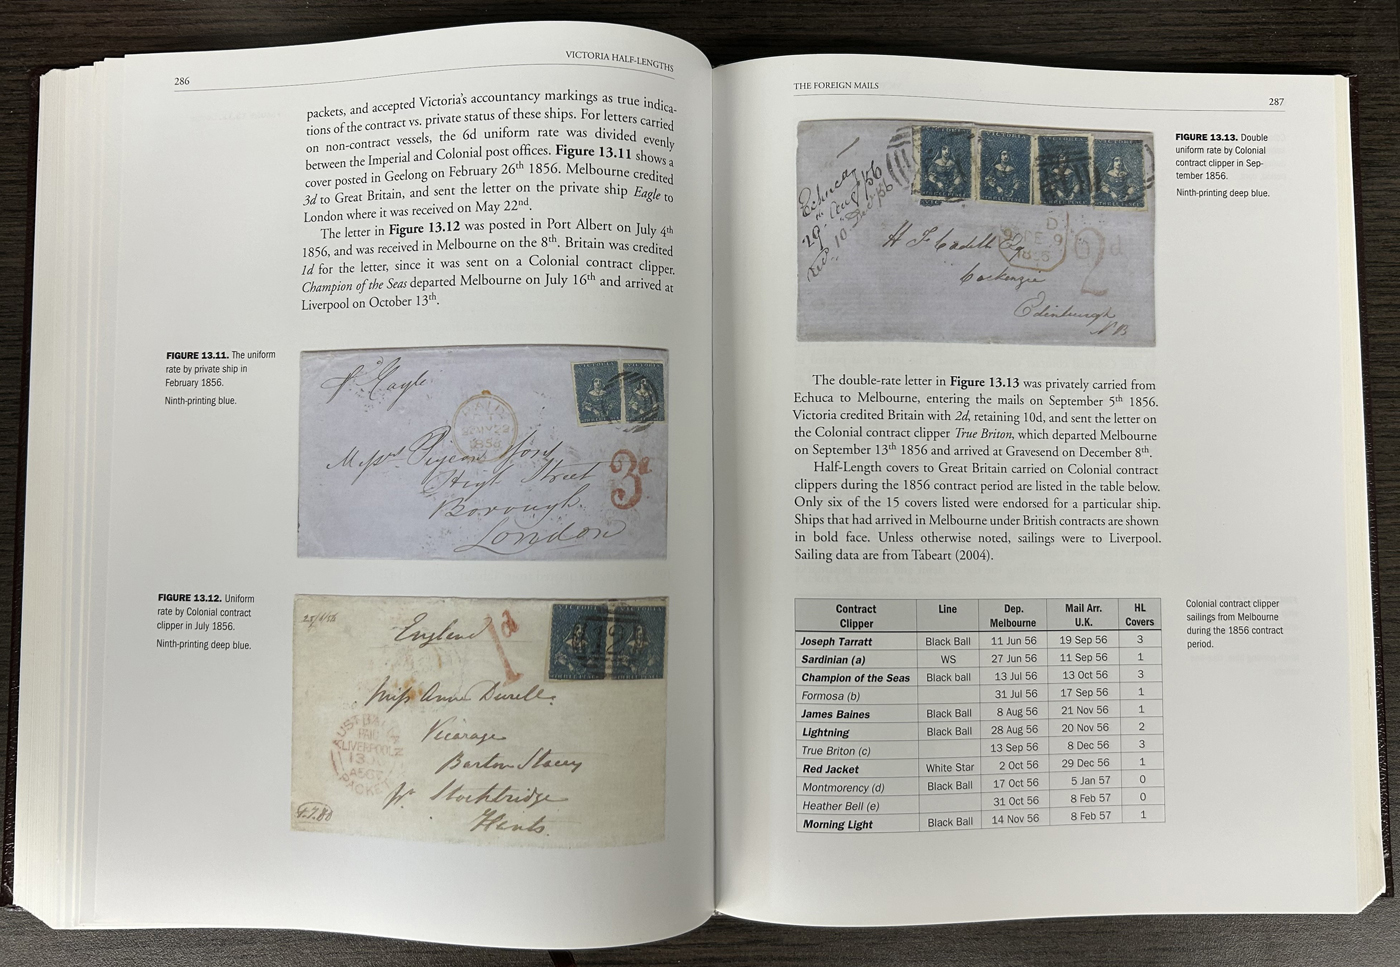 286
VICTORIA HALF-LENGTHS
packets, and accepted Victoria's accountancy markings as true indica-
tions of the contract vs. private status of these ships. For letters carried
on non-contract vessels, the 6d uniform rate was divided evenly
between the Imperial and Colonial post offices. Figure 13.11 shows a
cover posted in Geelong on February 26th 1856. Melbourne credited
3d to Great Britain, and sent the letter on the private ship Eagle to
London where it was received on May 22nd.
The letter in Figure 13.12 was posted in Port Albert on July 4th
1856, and was received in Melbourne on the 8th. Britain was credited
1d for the letter, since it was sent on a Colonial contract clipper.
Champion of the Seas departed Melbourne on July 16th and arrived at
Liverpool on October 13th.
FIGURE 13.11. The uniform
rate by private ship in
February 1856.
Ninth-printing blue.
Eagle
3d
High Street
Borough
London
FIGURE 13.12. Uniform
rate by Colonial contract
clipper in July 1856.
Ninth-printing deep blue.
England
1d
VICTORIA
Miss Ann Durell
Vicarage
Barton Stacey
Stockbridge
Hants.
PAID
LIVERPOOL
PACKET
THE FOREIGN MAILS
287
VICTORIA
Echuca
29 Aug '56
H F Cadell Esq
Cockenzie
Edinburgh
NB
1856
2d
FIGURE 13.13. Double
uniform rate by Colonial
contract clipper in Sep-
tember 1856.
Ninth-printing deep blue.
The double-rate letter in Figure 13.13 was privately carried from
Echuca to Melbourne, entering the mails on September 5th 1856.
Victoria credited Britain with 2d, retaining 10d, and sent the letter on
the Colonial contract clipper True Briton, which departed Melbourne
on September 13th 1856 and arrived at Gravesend on December 8th.
Half-Length covers to Great Britain carried on Colonial contract
clippers during the 1856 contract period are listed in the table below.
Only six of the 15 covers listed were endorsed for a particular ship.
Ships that had arrived in Melbourne under British contracts are shown
in bold face. Unless otherwise noted, sailings were to Liverpool.
Sailing data are from Tabeart (2004).
Contract Clipper Line Dep. Melbourne Mail Arr. U.K. HL Covers
Joseph Tarratt Black Ball 11 Jun 56 19 Sep 56 3
Sardinian (a) WS 27 Jun 56 11 Sep 56 1
Champion of the Seas Black ball 13 Jul 56 13 Oct 56 3
Formosa (b) 31 Jul 56 17 Sep 56 1
James Baines Black Ball 8 Aug 56 21 Nov 56 1
Lightning Black Ball 28 Aug 56 20 Nov 56 2
True Briton (c) 13 Sep 56 8 Dec 56 3
Red Jacket White Star 2 Oct 56 29 Dec 56 1
Montmorency (d) Black Ball 17 Oct 56 5 Jan 57 0
Heather Bell (e) 31 Oct 56 8 Feb 57 0
Morning Light Black Ball 14 Nov 56 8 Feb 57 1
Colonial contract clipper
sailings from Melbourne
during the 1856 contract
period.